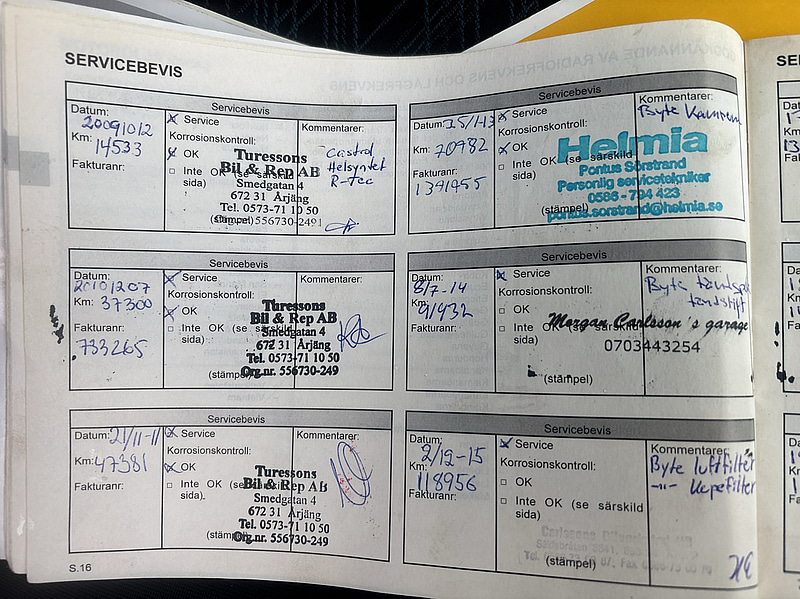 SERVICEBEVIS
Servicebevis
Datum: 20091012
Km: 14533
Fakturanr:
Service
Korrosionskontroll:
OK
Inte OK (se särskild
sida)
(stämpel)
Turessons
Bil & Rep AB
Smedgatan 4
672 31 Årjäng
Tel. 0573-71 10 50
Org.nr. 556730-2491
Kommentarer:
Castrol
Helsyntet
R-tec
Servicebevis
Datum: 20101207
Km: 37300
Fakturanr:
733265
Service
Korrosionskontroll:
OK
Inte OK (se särskild
sida)
(stämpel)
Turessons
Bil & Rep AB
Smedgatan 4
672 31 Årjäng
Tel. 0573-71 10 50
Org.nr. 556730-249
Kommentarer:
Servicebevis
Datum: 21/11-11
Km: 47381
Fakturanr:
Service
Korrosionskontroll:
OK
Inte OK (se
sida).
(stämpel)
Turessons
Bil & Rep AB
Smedgatan 4
672 31 Årjäng
Tel. 0573-71 10 50
Org.nr. 556730-249
Kommentarer:
Servicebevis
Datum: 25/1-13
Km: 70982
Fakturanr:
1391455
Service
Korrosionskontroll:
OK
Inte OK (se särskild
sida)
(stämpel)
Helmia
Pontus Sörstrand
Personlig servicetekniker
0586 - 794 423
pontus.sorstrand@helmia.se
Kommentarer:
Byte Kamrem
Servicebevis
Datum:
8/7-14
Km:
91932
Fakturanr:
Service
Korrosionskontroll:
OK
Inte OK (se särskild
sida)
(stämpel)
Morgan Carlsson´s garage
0703443254
Kommentarer:
Byte
tändstift
Servicebevis
Datum:
2/12-15
Km:
118956
Fakturanr:
Service
Korrosionskontroll:
OK
Inte OK (se särskild
sida)
(stämpel)
Kommentarer:
Byte luftfilter
-"- Kupefilter
S.16